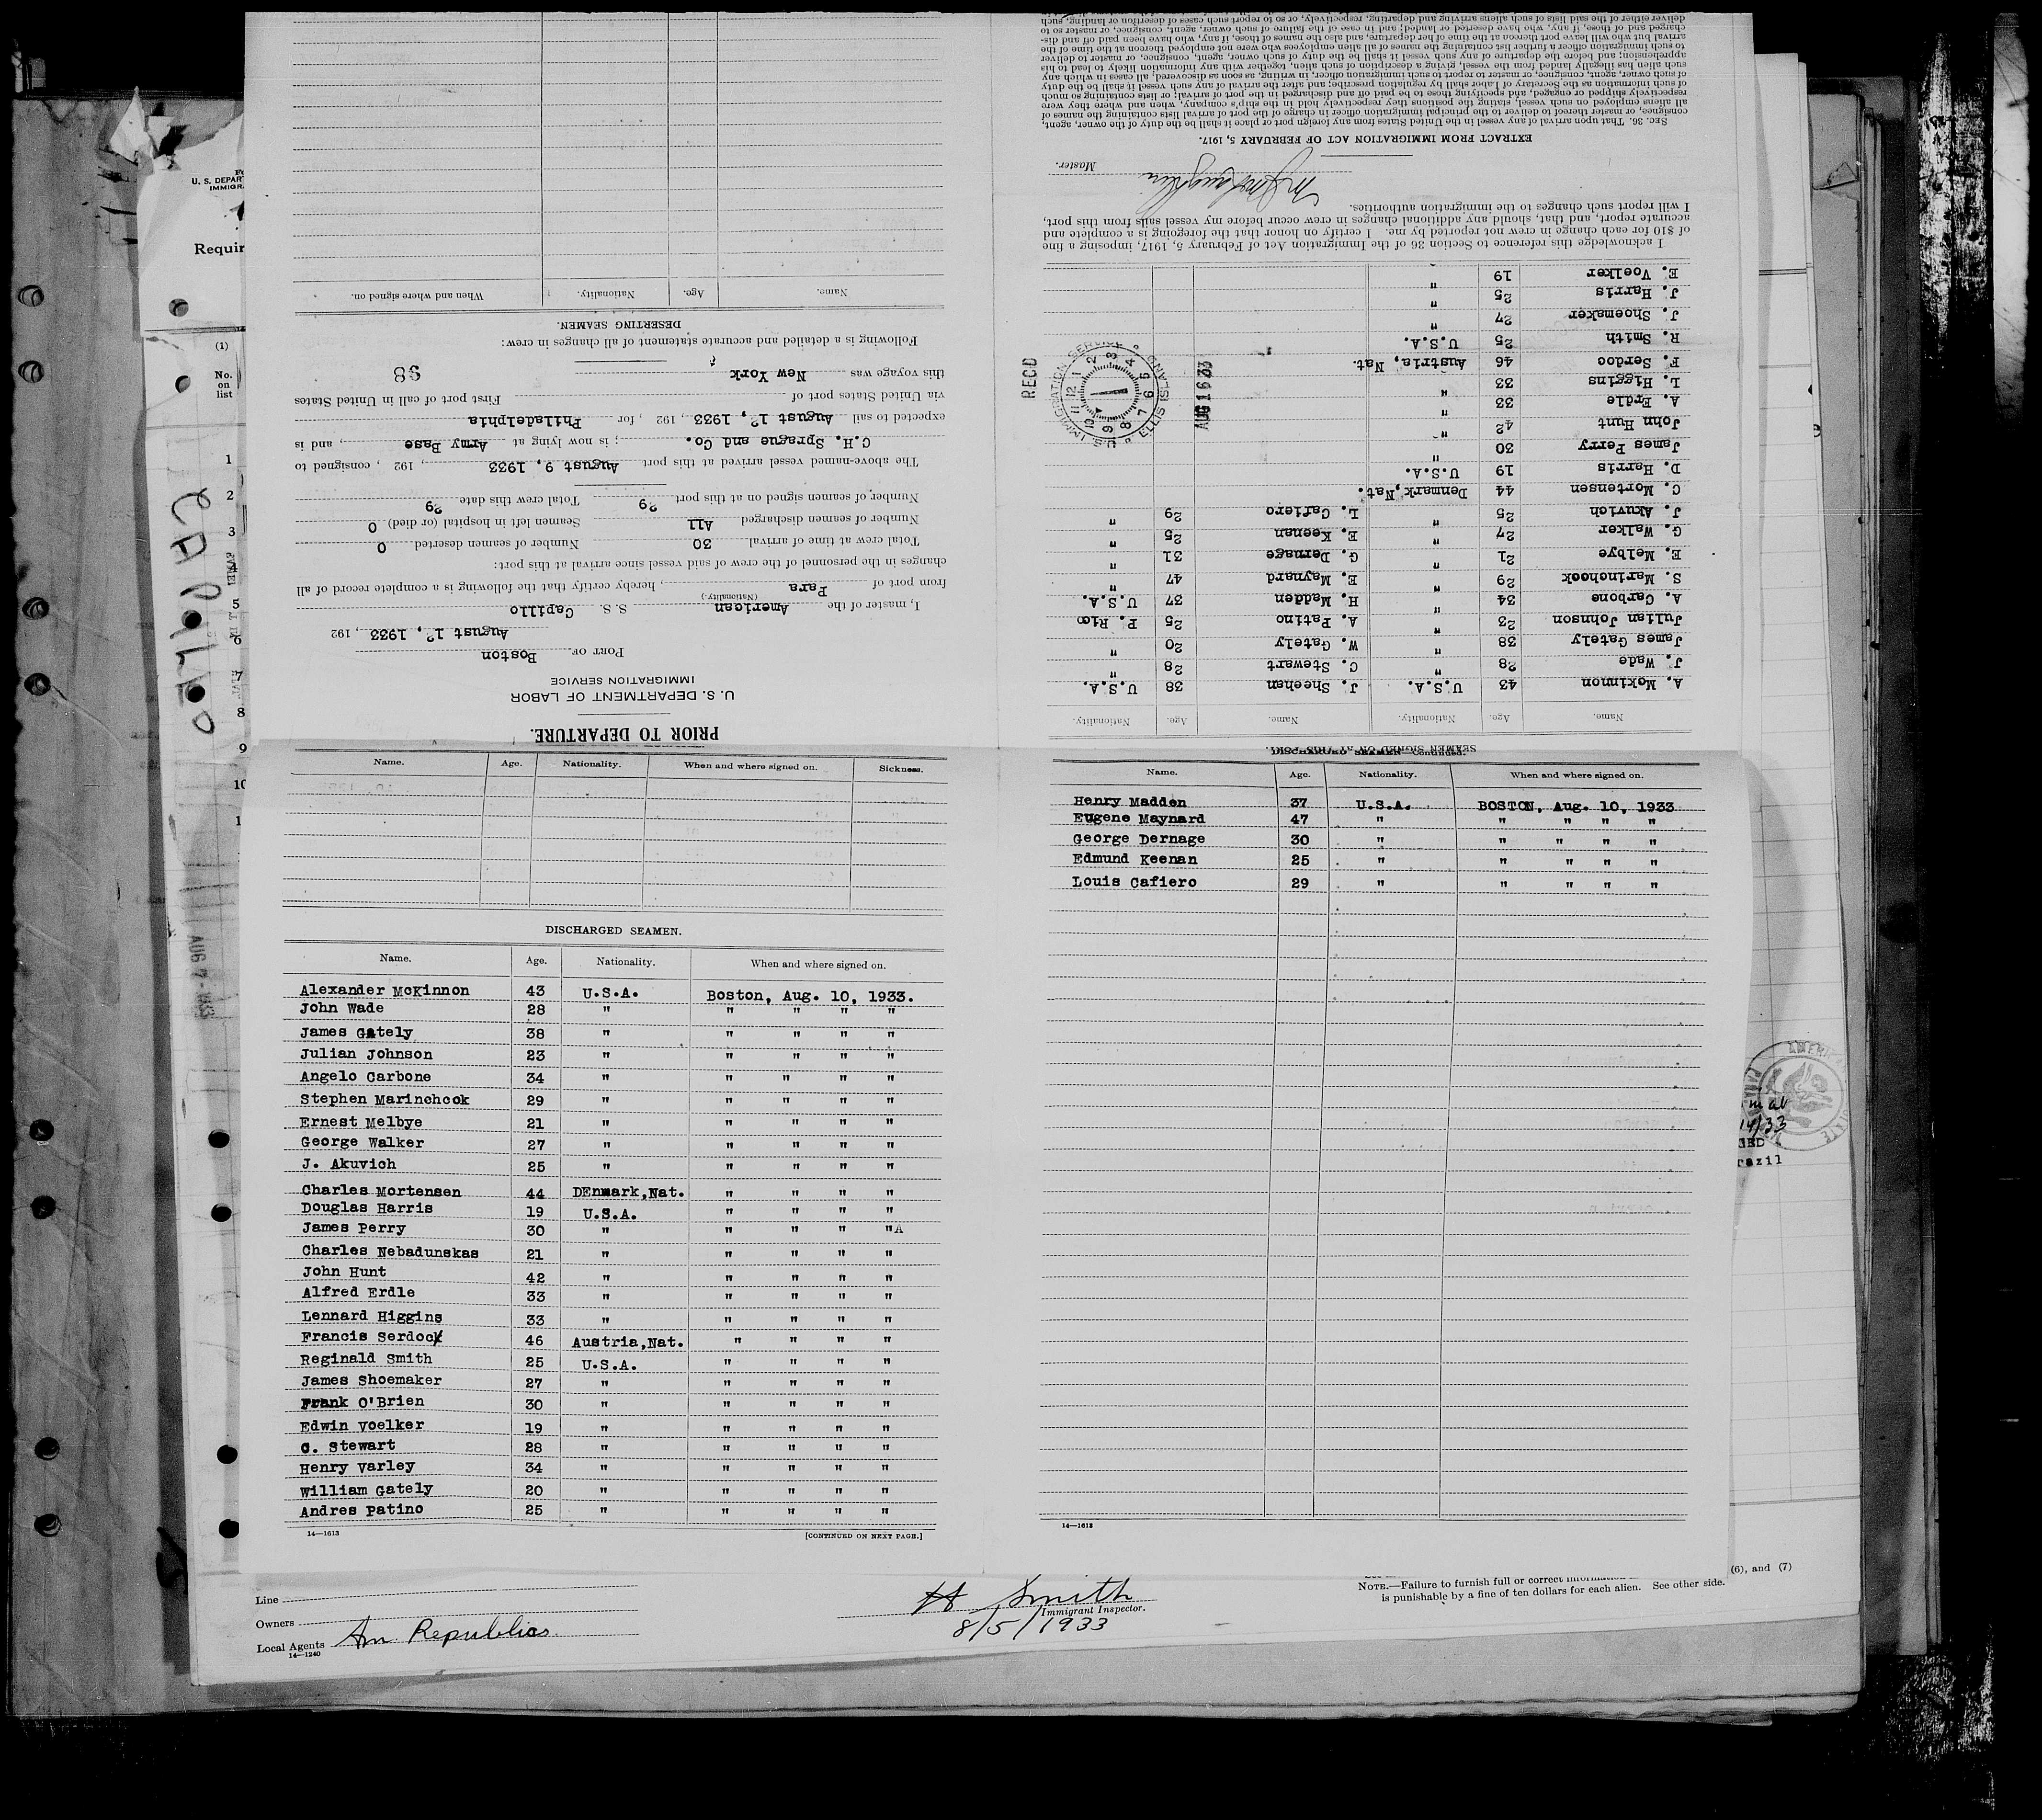 PRIOR TO DEPARTURE.
U. S. DEPARTMENT OF LABOR
IMMIGRATION SERVICE
PORT OF Boston
August 12, 1933, 192
I, master of the American S. S. Capillo
(Nationality.)
from port of Para, hereby certify that the following is a complete record of all
changes in the personnel of the crew of said vessel since arrival at this port:
Total crew at time of arrival 30 Number of seamen deserted 0
Number of seamen discharged All Seamen left in hospital (or died) 0
Number of seamen signed on at this port 29 Total crew this date 29
The above-named vessel arrived at this port August 9, 1933, 192 , consigned to
C.H. Sprague and Co. ; is now lying at Army Base, and is
expected to sail August 12, 1933, 192 , for Philadelphia
via United States port of First port of call in United States
this voyage was New York 98
Following is a detailed and accurate statement of all changes in crew:
DESERTING SEAMEN.
Name. Age. Nationality. When and where signed on.
SEAMEN SIGNED ON AT THIS PORT.
Name. Age. Nationality. Name. Age. Nationality.
A. McKinnon 43 U.S.A. J. Sheehan 38 U.S.A.
J. Wade 28 " C. Stewart 28 "
James Gately 38 " W. Gately 20 "
Julian Johnson 23 " A. Patino 25 P. Rico
A. Carbone 34 " H. Madden 37 U.S.A.
S. Marinchook 29 " E. Maynard 47 "
E. Melbye 21 " G. Dernage 31 "
G. Walker 27 " E. Keenan 25 "
J. Akuvich 25 " L. Cafiero 29 "
C. Mortensen 44 Denmark,Nat.
D. Harris 19 U.S.A.
James Perry 30 "
John Hunt 42 "
A. Erdle 33 "
L. Higgins 33 "
F. Serdoc 46 Austria, Nat.
R. Smith 25 U.S.A.
J. Shoemaker 27 "
J. Harris 25 "
E. Voelker 19 "
I acknowledge this reference to Section 36 of the Immigration Act of February 5, 1917, imposing a fine
of $10 for each change in crew not reported by me. I certify on honor that the foregoing is a complete and
accurate report, and that, should any additional changes in crew occur before my vessel sails from this port,
I will report such changes to the immigration authorities.
Master.
EXTRACT FROM IMMIGRATION ACT OF FEBRUARY 5, 1917.
SEC. 36. That upon arrival of any vessel in the United States from any foreign port or place it shall be the duty of the owner, agent,
consignee, or master thereof to deliver to the principal immigration officer in charge of the port of arrival lists containing the names of
all aliens employed on such vessel, stating the positions they respectively hold in the ship's company, when and where they were
respectively shipped or engaged, and specifying those to be paid off and discharged in the port of arrival; or lists containing so much
of such information as the Secretary of Labor shall by regulation prescribe; and after the arrival of any such vessel it shall be the duty
of such owner, agent, consignee, or master to report to such immigration officer, in writing, as soon as discovered, all cases in which any
such alien has illegally landed from the vessel, giving a description of such alien, together with any information likely to lead to his
apprehension; and before the departure of any such vessel it shall be the duty of such owner, agent, consignee, or master to deliver
to such immigration officer a further list containing the names of all alien employees who were not employed thereon at the time of the
arrival but who will leave port thereon at the time of her departure, and also the names of those, if any, who have been paid off and dis-
charged, and of those, if any, who have deserted or landed; and in case of the failure of such owner, agent, consignee, or master so to
deliver either of the said lists of such aliens arriving and departing, respectively, or so to report such cases of desertion or landing, such
REC'D
AUG 16 33
U.S. IMMIGRATION SERVICE ELLIS ISLAND
Name. Age. Nationality. When and where signed on. Sickness.
DISCHARGED SEAMEN.
Name. Age. Nationality. When and where signed on.
Alexander McKinnon 43 U.S.A. Boston, Aug. 10, 1933.
John Wade 28 " " " " "
James Gately 38 " " " " "
Julian Johnson 23 " " " " "
Angelo Carbone 34 " " " " "
Stephen Marinchook 29 " " " " "
Ernest Melbye 21 " " " " "
George Walker 27 " " " " "
J. Akuvich 25 " " " " "
Charles Mortensen 44 DEnmark,Nat. " " " "
Douglas Harris 19 U.S.A. " " " "
James Perry 30 " " " " "A
Charles Nebadunskas 21 " " " " "
John Hunt 42 " " " " "
Alfred Erdle 33 " " " " "
Lennard Higgins 33 " " " " "
Francis Serdock 46 Austria,Nat. " " " "
Reginald Smith 25 U.S.A. " " " "
James Shoemaker 27 " " " " "
Frank O'Brien 30 " " " " "
Edwin Voelker 19 " " " " "
C. Stewart 28 " " " " "
Henry Varley 34 " " " " "
William Gately 20 " " " " "
Andres Patino 25 " " " " "
14—1613 [CONTINUED ON NEXT PAGE.]
DISCHARGED SEAMEN—Continued.
Name. Age. Nationality. When and where signed on.
Henry Madden 37 U.S.A. BOSTON, Aug. 10, 1933
Eugene Maynard 47 " " " " "
George Dernage 30 " " " " "
Edmund Keenan 25 " " " " "
Louis Cafiero 29 " " " " "
14—1613
U. S. DEPAR
IMMIGRA
Requir
(1)
No.
on
list
1
2
3
4
5
6
7
8
9
10
1
CAPILLO
AUG 7 - 1933
14/33
razil
Line
Owners
Local Agents Am Republics
14—1240
H Smith
Immigrant Inspector.
8/5/1933
(6), and (7)
NOTE.—Failure to furnish full or correct information
is punishable by a fine of ten dollars for each alien. See other side.